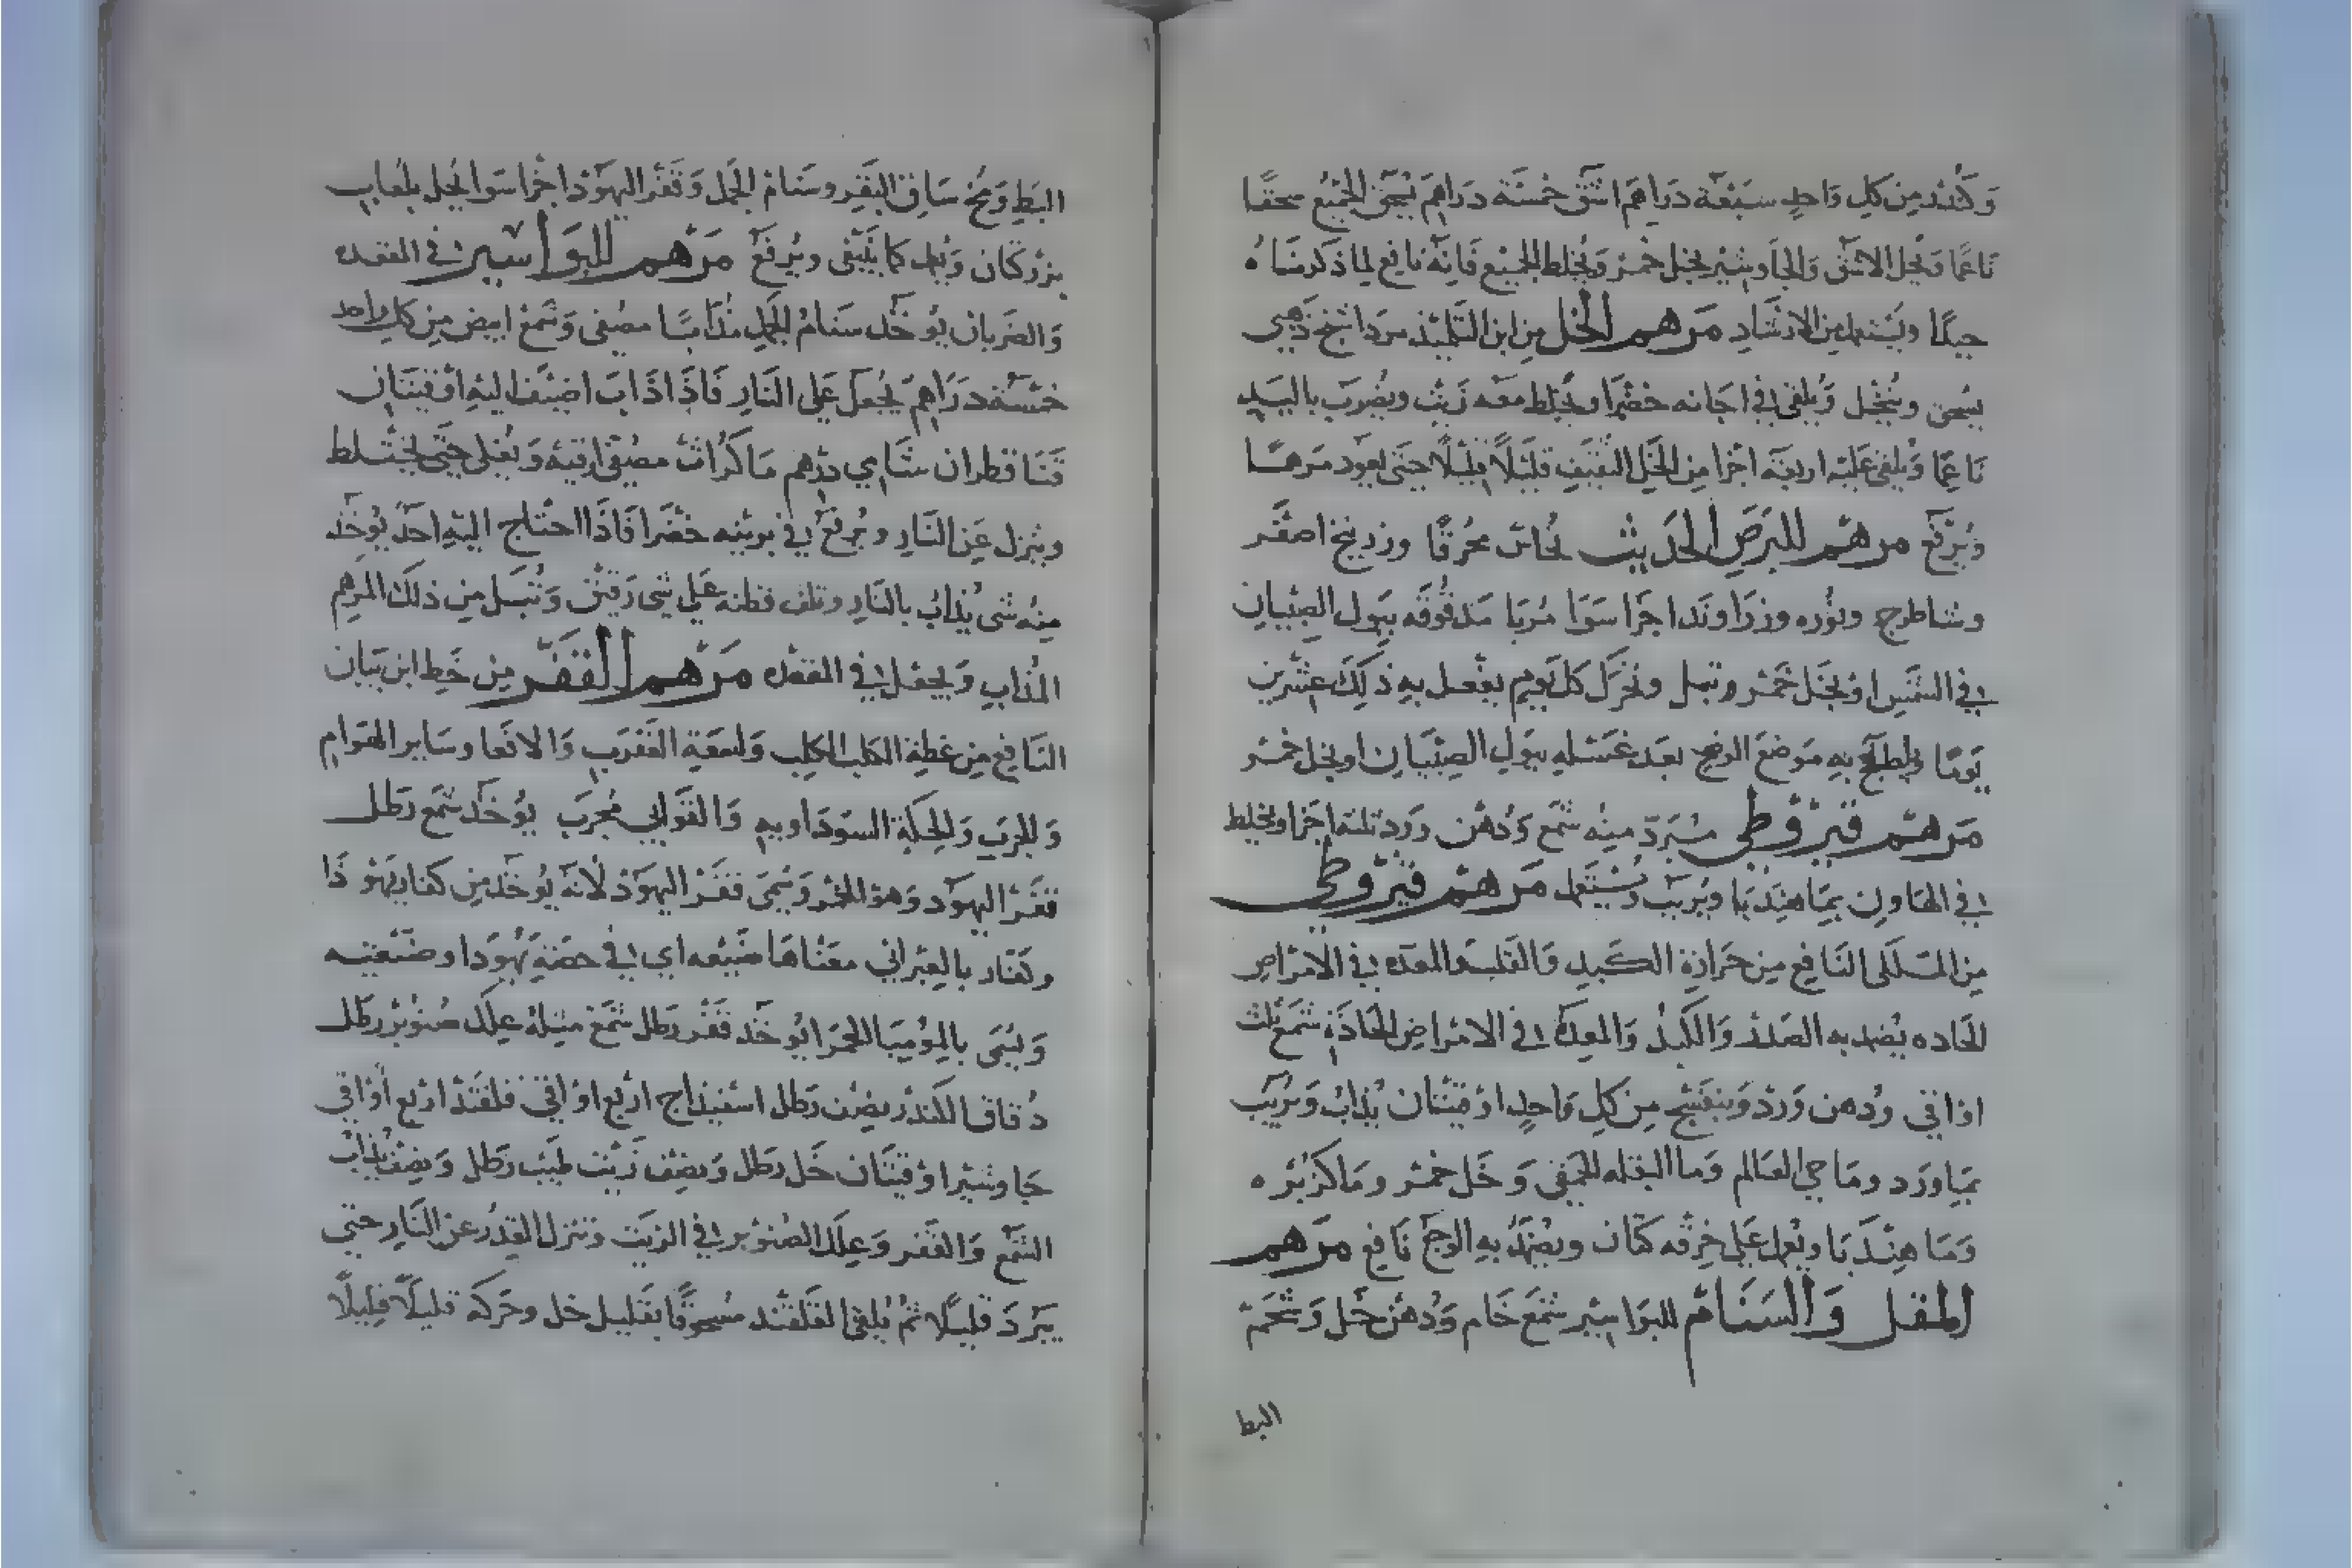 وَكُندُر مِن كلِ وَاحدٍ سَبْعَة دَرَاهِم اشَّق خمْسَة دَرَاهِم يُسْحَق الجَمْيع سحقًا
نَاعمًا وَيُحل الاشق وَالجاوشِيْر بخل خمْر وَيُخلط الجميْع فَانِهُ نافِع لما ذكرنَاهُ
جيدًا ويَسْتعمل من الارشَادِ مَرهم الخل مِن ابن التلميْذ مرداسَنج ذهَبي
يسحق ويُنْخل وَيُلقى في اجَانه خضْرا ويُخلط معَه زَيت ويُضرَب باليَدِ
نَاعمًا وَيُلقى عَليْه اربعَة اجزا مِن الخَل الثقِيْفِ قليْلًا قليْلًا حتَى يعود مَرهمًا
وَيُرْفَع مرهَم للبَرَصِ الحَدِيث نُحاس محُرقًا وزرنيخ اصْفَر
وشَاطرج ونُوره وزرَاوند اجزَا سَوَا مُربَا مَدقُوقَه بِبَول الصِبْيانِ
في الشمْسِ او بخَل خمْر وتبل وتحرَك كل يَومٍ يفْعل بهِ ذلكَ عِشْرين
يَومًا ويلطخ بهِ مَوضعَ الوضح بعَد غسْلهِ ببَولِ الصِبْيَانِ او بخل خمْر
مَرهَم قيْرُوطي مُبَرِدّ مِنه شَمع وَدُهْن وَرد ثلثه اجزا ويخلط
في الهَاونِ بمَا هنِدَبَا ويُرَيّب وَيُسْتَعمل مَرهَم قيْرُوطي
مِن المَلَكى النَافع مِن حَرارَة الكبدِ وَالقلب وَالمعدَه في الامْرَاض
الحَاده يُضمد به الصَدر وَالكبد وَالمعدَه في الامْرَاضِ الحَادَةِ شمَع ثلث
اوَاقي ودُهن وَرْد وَبنَفسَج مِن كل وَاحِدٍ اوْقيَتَان يُذابُ وَيُرَيّب
بمَا وَرد ومَا حي العَالم وَما البقله الحَمقى وَخَل خمْر ومَا كزبَرَه
وَمَا هِنْدَبَا ويُعمل عَلى خِرقَه كتان ويُضمَدُ بهِ الوَجع نَافِع مَرهم
المقل وَالسَنَامْ للبوَاسِيْر شمَع خَام وَدُهْن خل وَشَحْم
البط
البَطِ وَمُخ سَاقِ البَقَرِ وسَنَامُ الجمل وَقَفَر اليهُود اجْزا سَوا يُحل بلعَاب
بزركتان وَيُعمل كما يَنْبَغى ويُرفَع مَرهم للبَواسِير في المقعده
وَالضرَبان يُوخَذ سَنامُ الجَمل مُذابًا مصَفى وَشمع ابيَض مِن كل وَاحد
خمْسَة دَرَاهِم يُجعَل عَلى النَارِ فَاذَا ذَابَ اضيْفَ اليْهِ اوْقيَتَان
قَنَا قطرَان شَامي درهم مَا كُرَّاث مصَفى اوقيَه وَيُغلى حَتى يختَلط
وينزل عَن النَارِ ويُرفع في برنيَه خضْرا فَاذَا احْتاج اليْهِ احَدٌ يُوخَذ
مِنْه شى يُذابُ بالنَارِ وتلف قطنَه عَلى شى رَقيْق وَتُبَل مِن ذلكَ المَرهَم
المُذابِ وَيجعَل في المقعَده مَرهَم القَفَر مِن خَط ابن بَيان
النَافِع مِن عَضةِ الكلب الكلِب وَلسعَةِ العَقرَب وَالافعَا وسَاير الهَوَام
وَالجرَب وَالحِكة السوَدَاويه وَالقوَابي مُجرَب يُوخَذ شمَع رَطل
قفَر اليهُود وَهوَ الحُمَر وَيُسَمى قفَر اليهُود لانَه يُوخَذ مِن كفار يَهُوذَا
وكفار بالعِبرَاني مَعْنَاهَا ضَيْعَه اي في حصَةِ يَهُودَا وضَيْعَتِه
وَيُسَمى بالمُوميَا الحمرَا يُوخَذ قَفر رَطل شمَع مِثله عِلك صنوْبَر رَطل
دُقاق الكُندر نصْف رَطل اسْفيْذاج ارْبع اوَاقي قلقَنْد ارْبع اوَاقي
جَاوشيْر اوْقيَتَان خَل رَطل وَنصْف زَيْت طَيِب رَطل وَنصْف يُذاب
الشمع وَالقَفر وَعِلك الصنوْبر في الزَيت وَتنزل القِدرُ عَن النَارِ حتى
يَبْرُدَ قليْلًا ثُم يُلقى القلقَنْد مسحُوقًا بقَليْل خل وحَركه قليْلًا قليْلًا